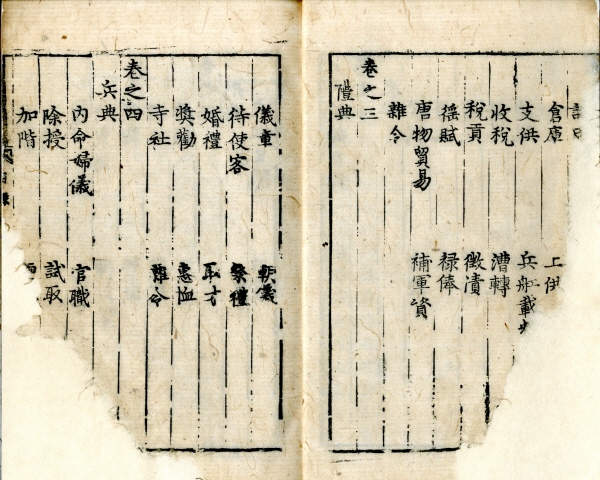 倉庫 上
支供 兵舡載
收稅 漕轉
稅貢 徵債
徭賦 祿俸
唐物貿易 補軍資
雜令
卷之三
禮典
儀章 朝儀
待使客 祭禮
婚禮 取才
奬勸 惠恤
寺社 雜令
卷之四
兵典
內命婦儀 官職
除授 試取
加階